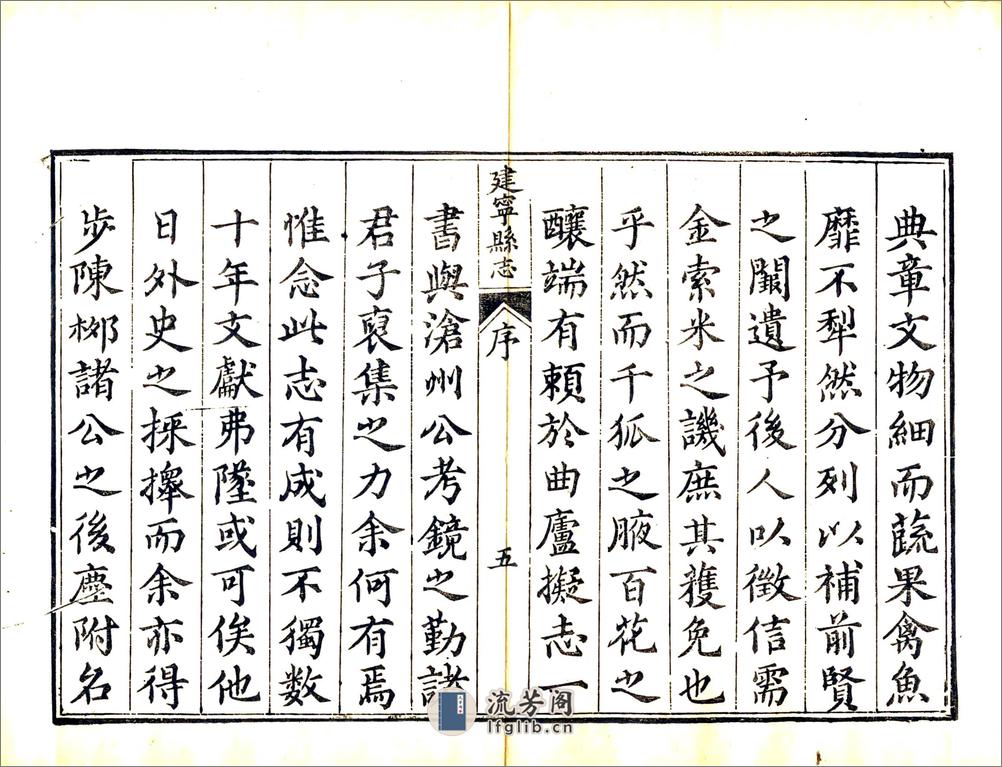 典章文物細而蔬果禽魚
靡不犁然分列以補前賢
之闕遺予後人以徵信需
金索米之譏庶其獲免也
乎然而千狐之腋百花之
釀端有賴於曲廬擬志一
建寧縣志
序
五
書與滄州公考鏡之勤諸
君子裒集之力余何有焉
惟念此志有成則不獨數
十年文獻弗墜或可俟他
日外史之採擇而余亦得
步陳栁諸公之後塵附名
流芳阁
lfglib.cn